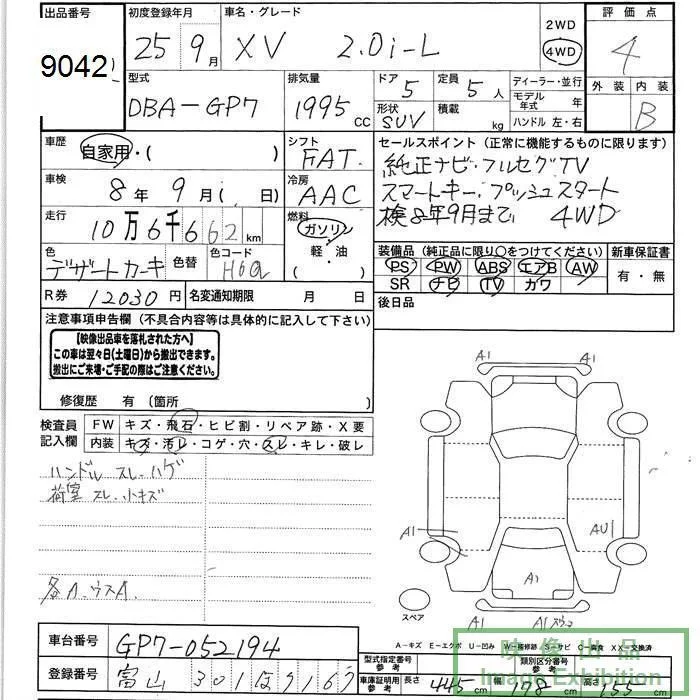 出品番号 初度登録年月 車名・グレード 2WD 評価点
9042 25 9月 XV 2.0i-L 4WD 4
型式 排気量 ドア 定員 ディーラー・並行 外装 内装
DBA-GP7 1995cc 5 5人 モデル年式 年
形状 SUV 積載 kg ハンドル 左・右 B
車歴 自家用・( ) シフト FAT セールスポイント (正常に機能するものに限ります)
純正ナビ・フルセグTV
車検 8年9月( 日) 冷房 AAC スマートキー・プッシュスタート
検8年9月まで 4WD
走行 10万6千662km 燃料 ガソリン 軽・油
色 デザートカーキ 色替 色コード H6Q
装備品 (純正品に限り○をつけてください) 新車保証書
PS PW ABS エアB AW 有・無
SR ナビ TV カワ
R券 12030円 名変通知期限 月 日 後日品
注意事項申告欄 (不具合内容等は具体的に記入して下さい)
【映像出品車を落札された方へ】
この車は翌々日(土曜日)から搬出できます。
搬出にご来場・ご手配の際はご注意ください。
修復歴 有 (箇所 )
検査員記入欄 FW キズ・飛石・ヒビ割・リペア跡・X要
内装 キズ・汚レ・コゲ・穴・スレ・キレ・破レ
ハンドル スレ・ハゲ
荷室 スレ・小キズ
A1 A1
A1 AU1
A1
スペア
A1 A1
A-キズ E-エクボ U-凹み W-補修跡 S-サビ C-腐食 XX-交換済
車台番号 GP7-052194
登録番号 富山 301
型式指定番号 参考 類別区分番号 参考
車庫証明用 参考 長さ 445cm 幅 178cm 高さ 155cm
映像出品
Image Exhibition